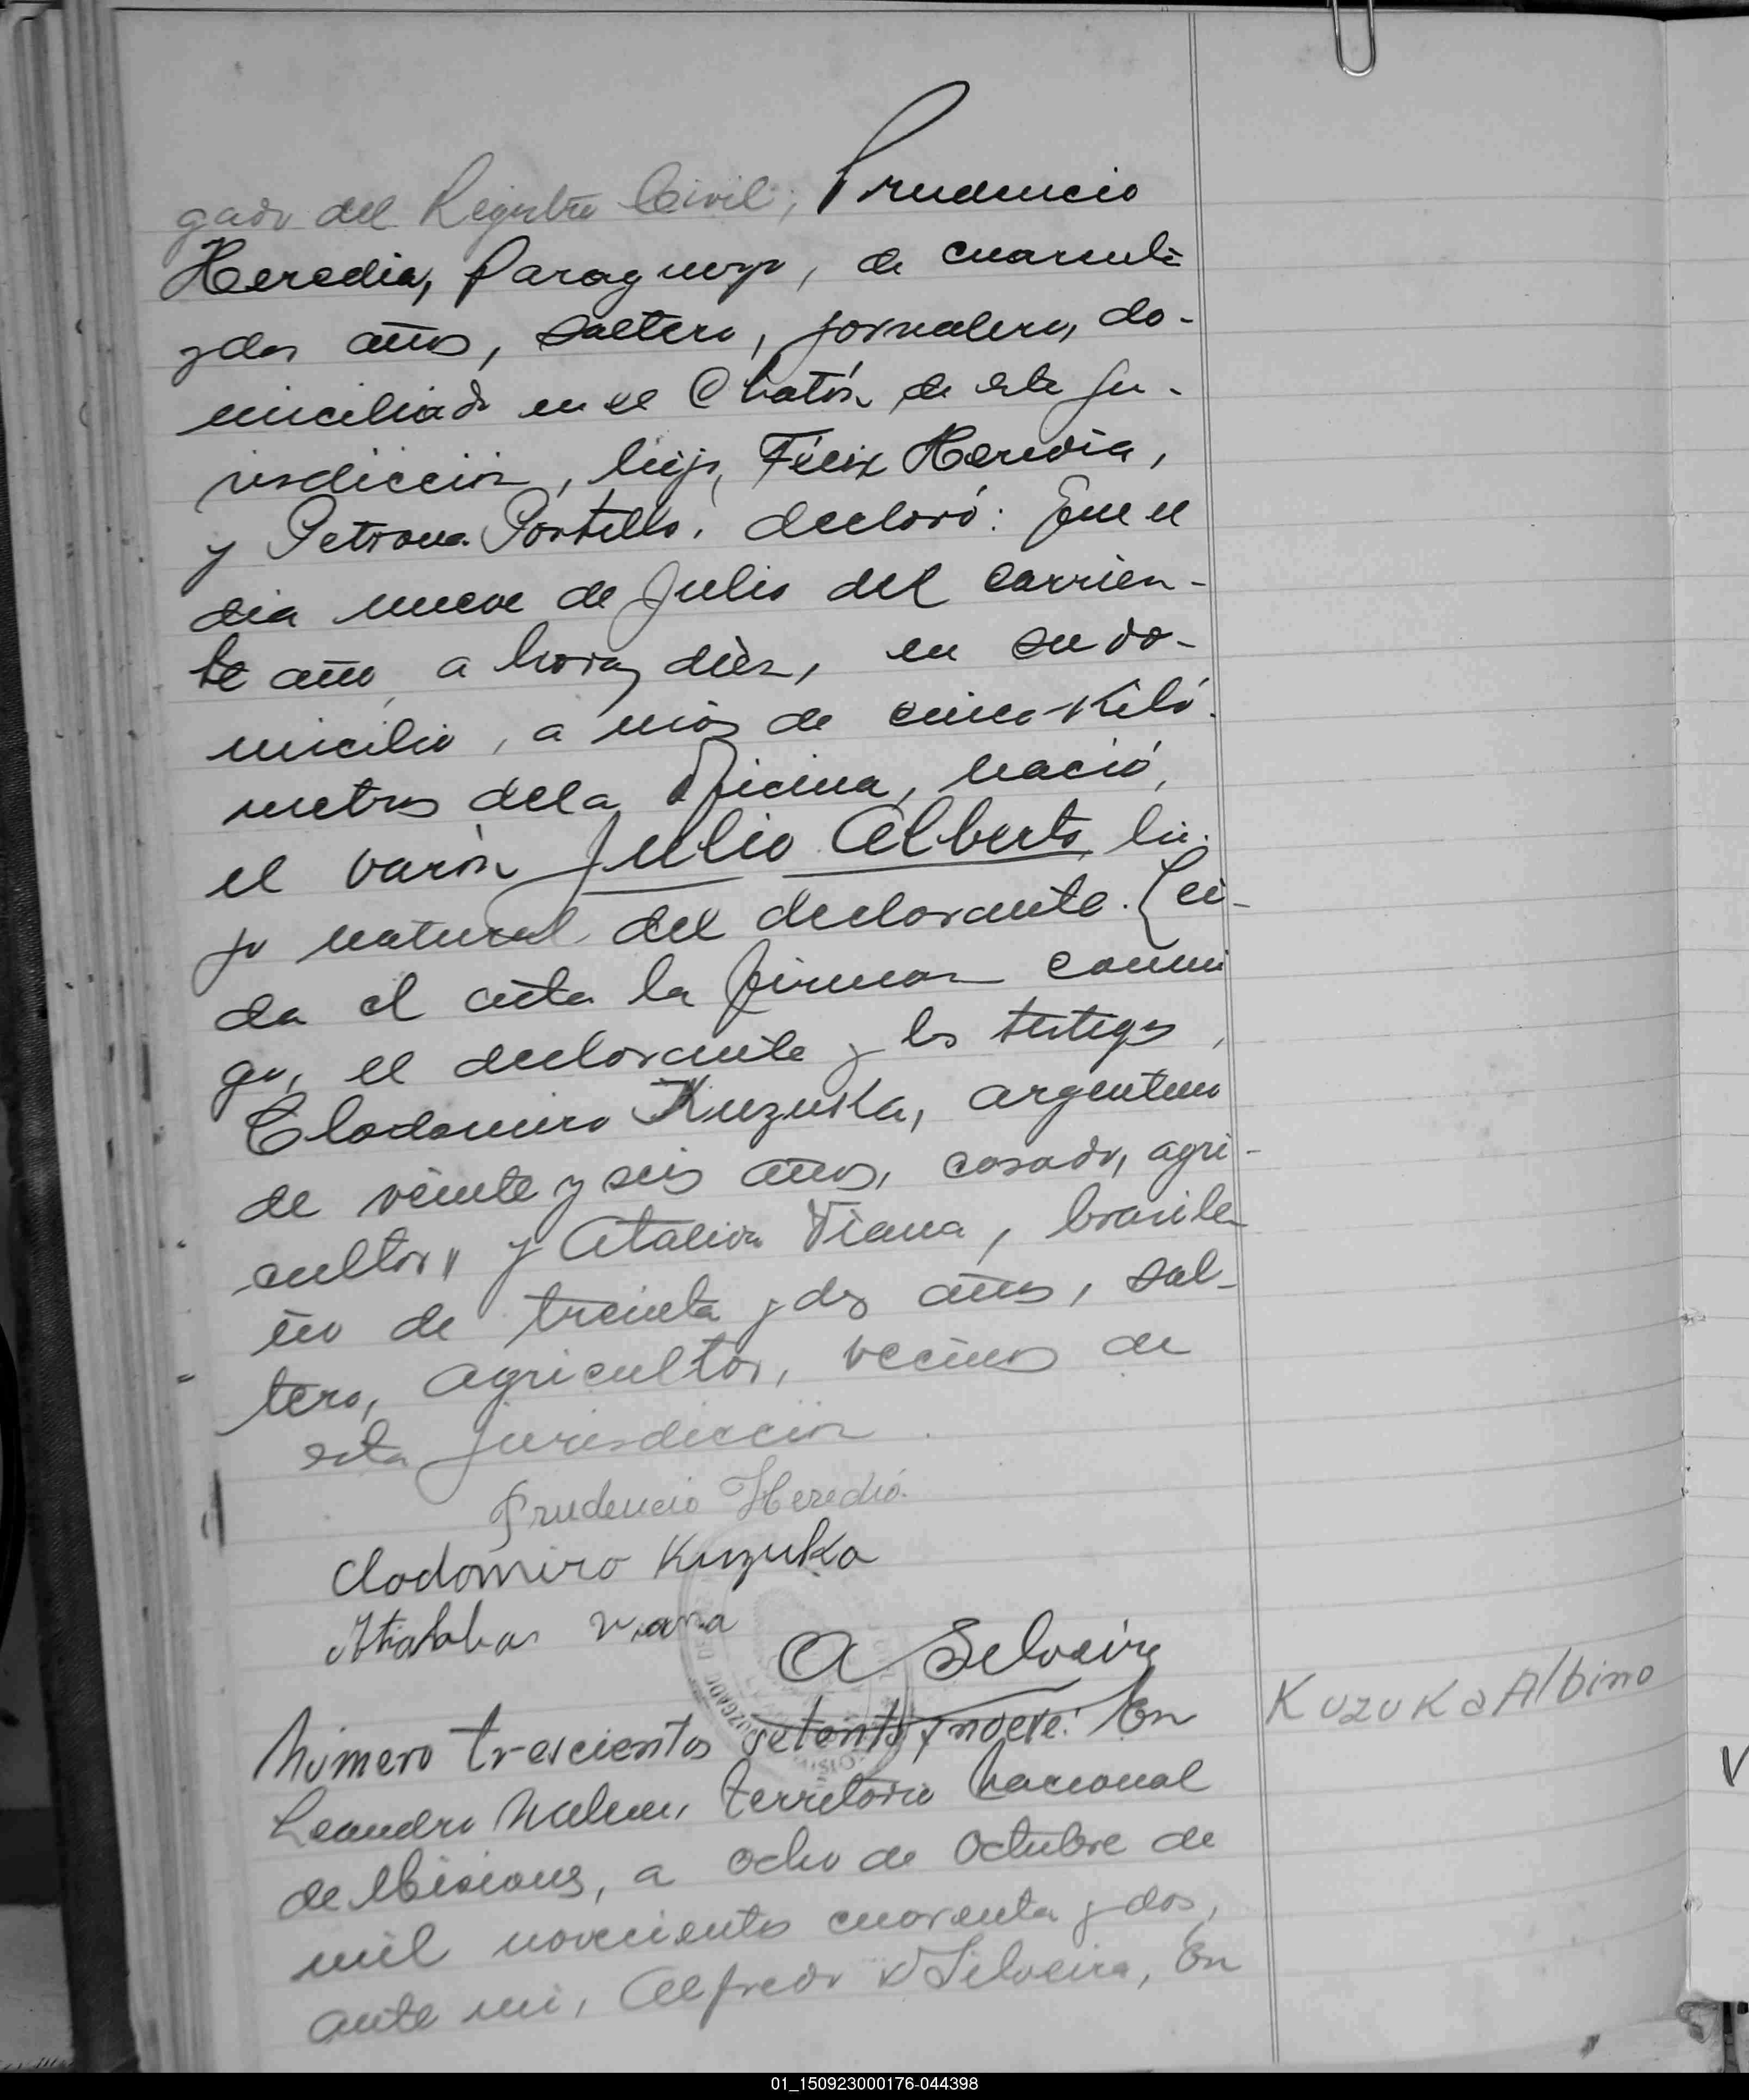 gado del Registro Civil; Prudencio
Heredia, Paraguayo, de cuarenta
y dos años, soltero, jornalero, do-
miciliado en el Chatón de esta ju-
risdicción, hijo, Félix Heredia,
y Petrona Portillo, declaró: Que el
dia nueve de Julio del corrien-
te año, a horas diéz, en su do-
micilio, a más de cinco Kiló-
metros de la Oficina, nació,
el varón Julio Alberto, hi-
jo natural del declarante. Leí-
da el acta la firman conmi
go, el declarante y los testigos,
Clodomiro Kuzuka, argentino
de veinte y seis años, casado, agri-
cultor, y Atalivia Viana, brasile-
ño de treinta y dos años, sol-
tero, agricultor, vecinos de
esta jurisdicción.
Prudencio Heredia
Clodomiro Kuzuka
Viana
A Silveira
Número trescientos setenta y nueve: En
Leandro N. Alem, territorio Nacional
de Misiones, a ocho de Octubre de
mil novecientos cuarenta y dos,
ante mi, Alfredo V Silveira, En
Kuzuka Albino
01_150923000176-044398